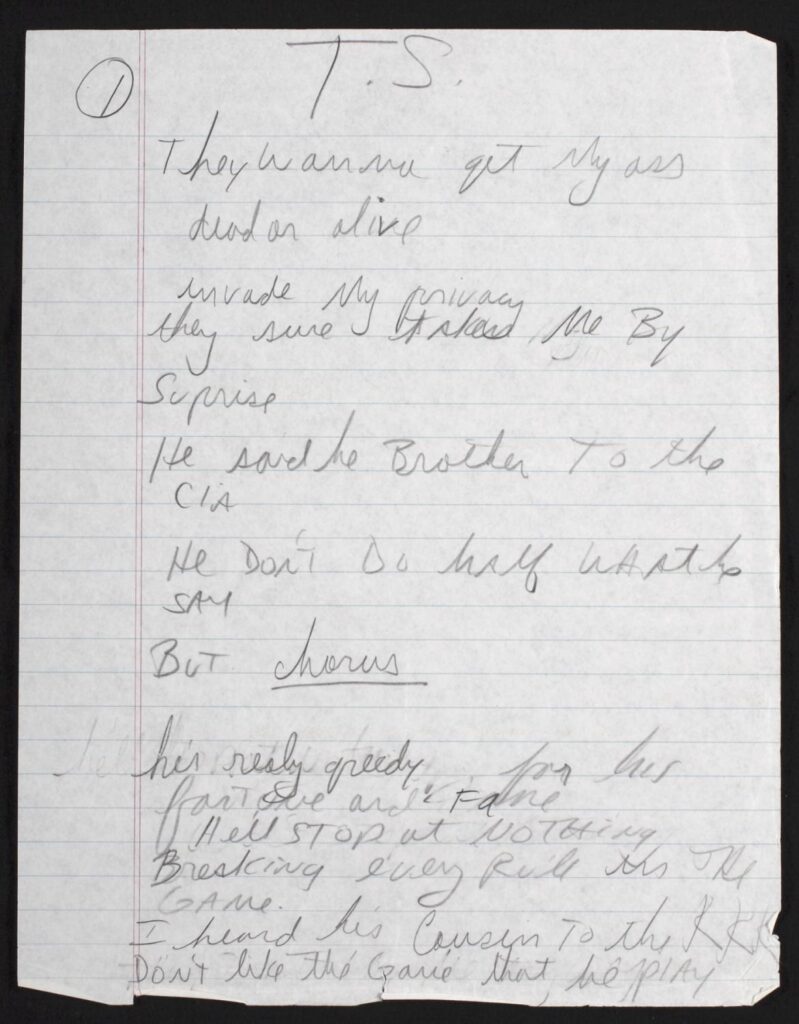 ①
T.S.
They wanna get My ass
dead or alive
invade My privacy
they sure Me By
Suprise
He said he Brother To the
CIA
He Don't Do half What he
SAY
But chorus
his realy greedy for his
fortune and Fame
Hell STOP at NOTHing
Breaking every Rule the
GAME.
I heard his Cousin To the KKK
DON'T like the Game that he PlAY